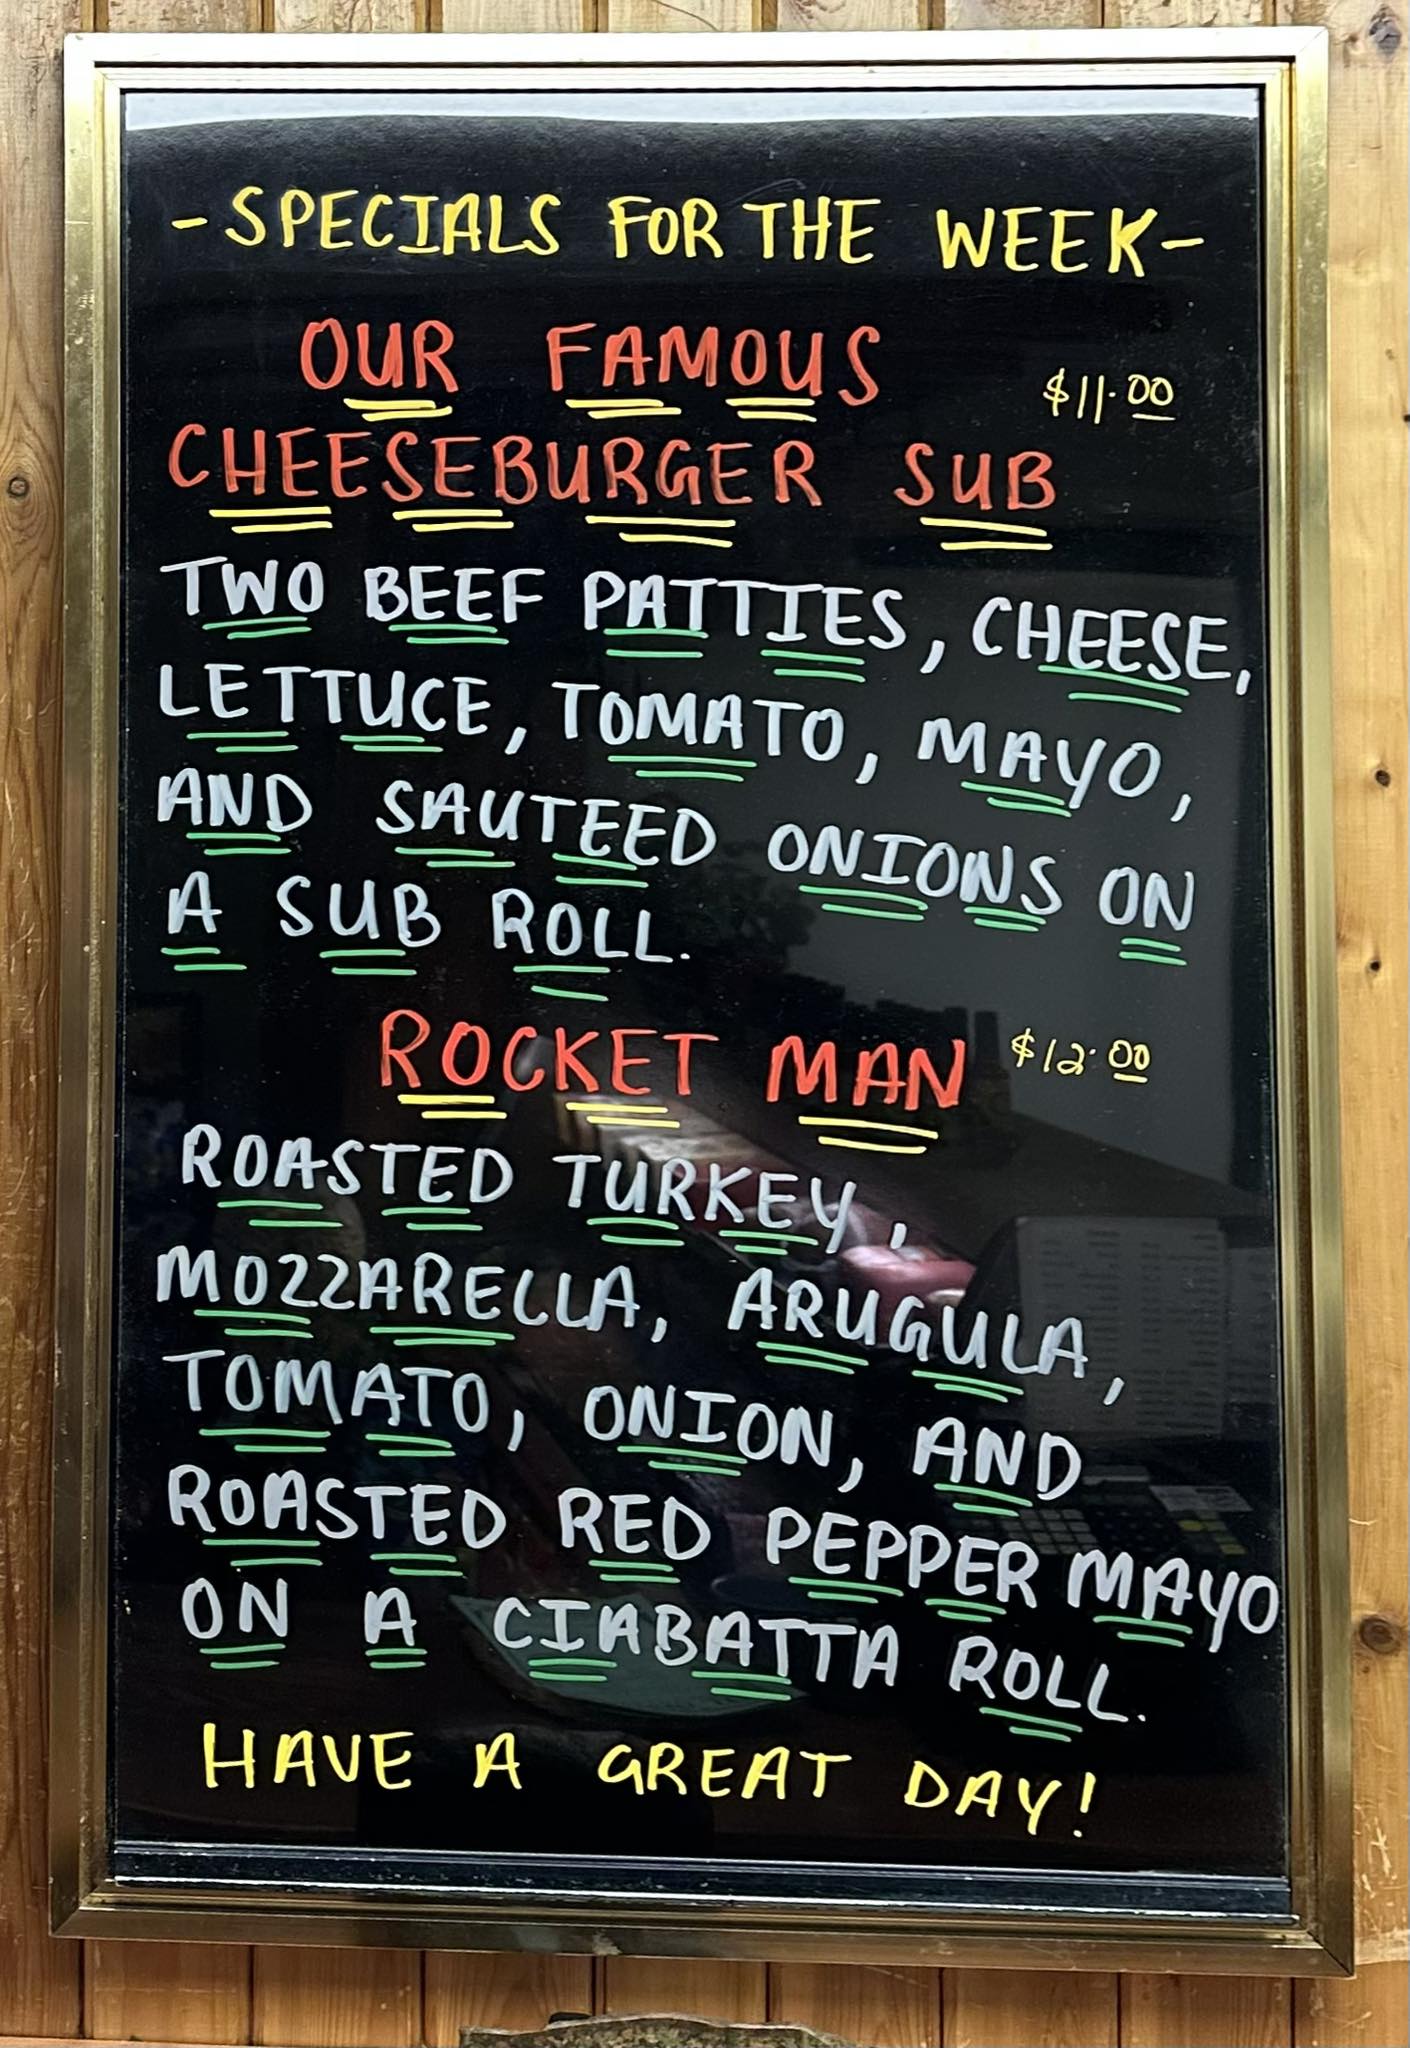 -SPECIALS FOR THE WEEK-
OUR FAMOUS $11.00
CHEESEBURGER SUB
TWO BEEF PATTIES, CHEESE,
LETTUCE, TOMATO, MAYO,
AND SAUTEED ONIONS ON
A SUB ROLL.
ROCKET MAN $12.00
ROASTED TURKEY,
MOZZARELLA, ARUGULA,
TOMATO, ONION, AND
ROASTED RED PEPPER MAYO
ON A CIABATTA ROLL.
HAVE A GREAT DAY!